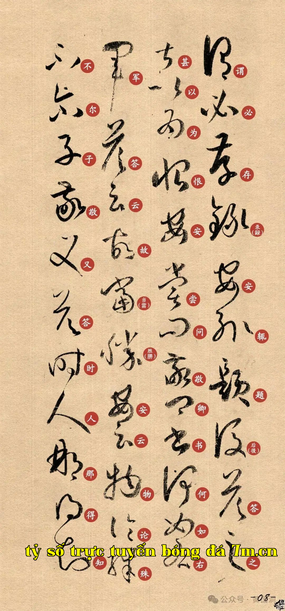 谓必存录安辄题后答之
甚以为恨安尝问敬卿书何如右
军答云故当胜安云物论殊
不尔子敬又答时人那得知
tỷ số trực tuyến bóng đá 7m.cn
公众号
-08-